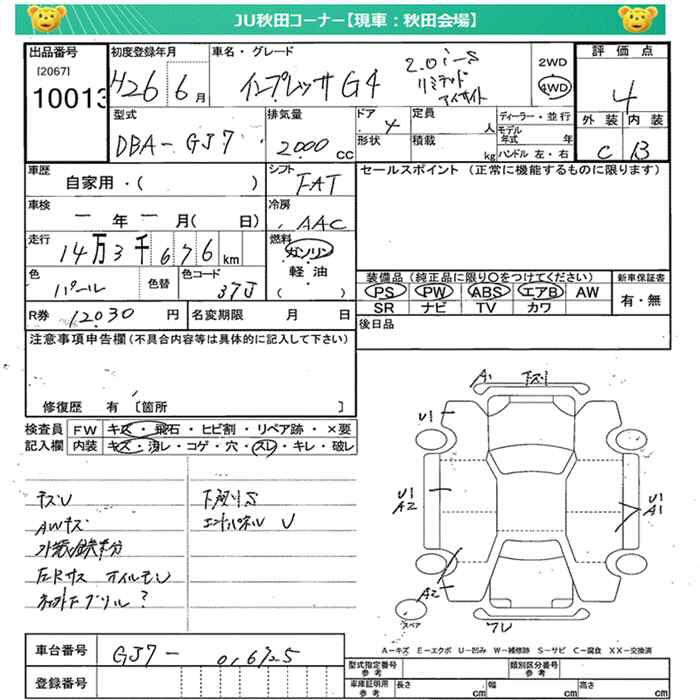 JU秋田コーナー【現車：秋田会場】
出品番号 初度登録年月 車名・グレード 評価点
[2067]
10013 H26 6月 インプレッサ G4 2.0i-S リミテッド アイサイト 2WD 4WD 4
外装 内装
C B
型式 排気量 ドア 定員 ディーラー・並行
DBA-GJ7 2000 cc 4 人 モデル年式 年
形状 積載 kg ハンドル 左・右
車歴 シフト セールスポイント (正常に機能するものに限ります)
自家用・( ) FAT
車検 冷房
－年－月( 日) AAC
走行 燃料
14万3千676km ガソリン
軽・油
( )
色 色替 色コード
パール 37J
装備品 (純正品に限り○をつけてください) 新車保証書
PS PW ABS エアB AW 有・無
SR ナビ TV カワ
R券 12030 円 名変期限 月 日
後日品
注意事項申告欄 (不具合内容等は具体的に記入して下さい)
修復歴 有 〔箇所 〕
検査員 FW キズ・飛石・ヒビ割・リペア跡・×要
記入欄 内装 キズ・汚レ・コゲ・穴・スレ・キレ・破レ
A1 下スリ
U1
U1
A2
U1
A1
A2
スペア
ワレ
チズU 下スリS
AWキズ エンドパネル U
A－キズ E－エクボ U－凹み W－補修跡 S－サビ C－腐食 XX－交換済
車台番号 GJ7-
登録番号
型式指定番号 参考 類別区分番号 参考
車庫証明用 参考 長さ cm 幅 cm 高さ cm